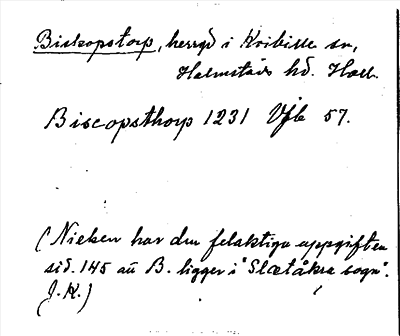 Biskopstorp, herrgd i Kvibille sn,
Halmstads hd. Hall.
Biscopsthorp 1231 Vfb 57.
(Nielsen har den felaktiga uppgiften
sid. 145 att B. ligger i "Slætåkra sogn".
J. K.)